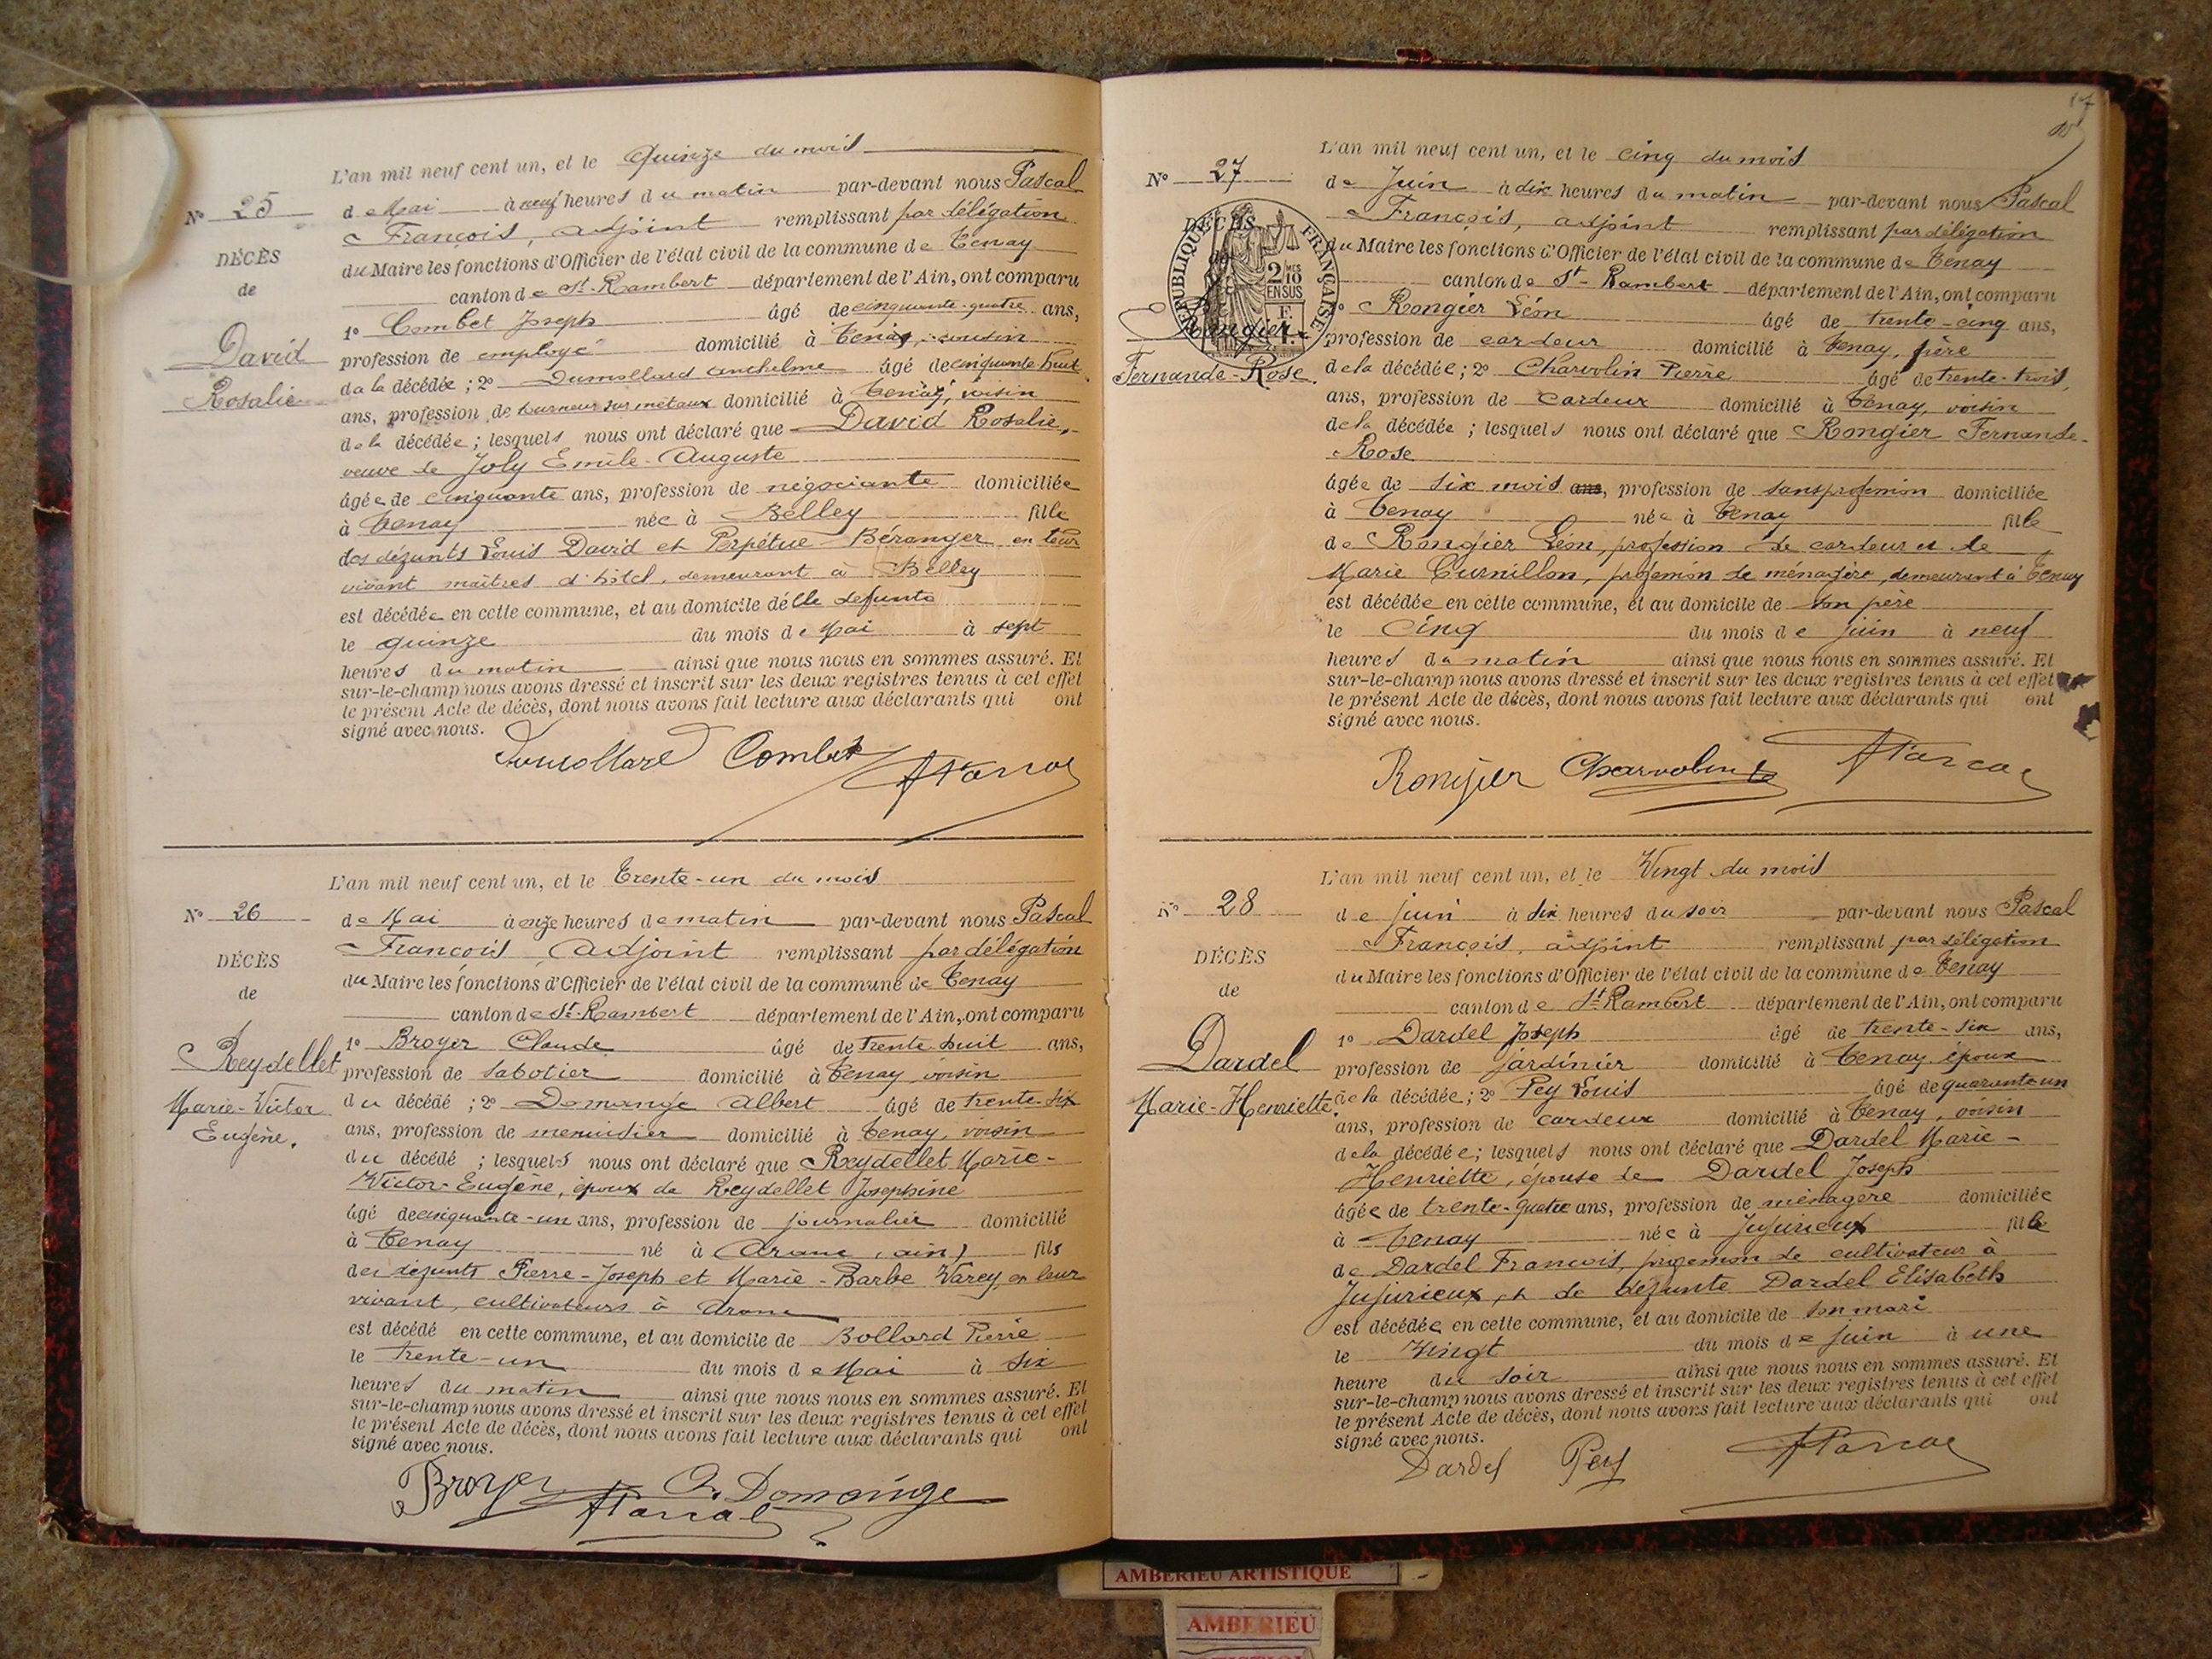 L'an mil neuf cent un, et le Quinze du mois
N° 25
de Mai à neuf heures du matin par-devant nous Pascal
François, adjoint remplissant par délégation
du Maire les fonctions d'Officier de l'état civil de la commune de Tenay
canton de St-Rambert département de l'Ain, ont comparu
1° Combet Joseph âgé de cinquante-quatre ans,
profession de employé domicilié à Tenay, cousin
de la décédée ; 2° Dumollard Anthelme âgé de cinquante-huit
ans, profession de tourneur sur métaux domicilié à Tenay, voisin
de la décédée ; lesquels nous ont déclaré que David Rosalie,
veuve de Joly Emile-Auguste
âgée de cinquante ans, profession de négociante domiciliée
à Tenay née à Belley fille
des défunts Louis David et Perpétue Béranger en leur
vivant maîtres d'hôtel, demeurant à Belley
est décédée en cette commune, et au domicile de lle défunte
le quinze du mois de Mai à sept
heures du matin ainsi que nous nous en sommes assuré. Et
sur-le-champ nous avons dressé et inscrit sur les deux registres tenus à cet effet
le présent Acte de décès, dont nous avons fait lecture aux déclarants qui ont
signé avec nous.
DÉCÈS
de
David
Rosalie
Dumollard Combet FPascal
L'an mil neuf cent un, et le Trente-un du mois
N° 26
de Mai à onze heures de matin par-devant nous Pascal
François, Adjoint remplissant par délégation
du Maire les fonctions d'Officier de l'état civil de la commune de Tenay
canton de St-Rambert département de l'Ain, ont comparu
1° Broyer Claude âgé de trente-huit ans,
profession de sabotier domicilié à Tenay voisin
du décédé ; 2° Domange Albert âgé de trente-six
ans, profession de menuisier domicilié à Tenay, voisin
du décédé ; lesquels nous ont déclaré que Reydellet Marie-
Victor-Eugène, époux de Reydellet Josephine
âgé de cinquante-un ans, profession de journalier domicilié
à Tenay né à Aranc (ain) fils
des défunts Pierre-Joseph et Marie-Barbe Varey en leur
vivant, cultivateurs à Aranc
est décédé en cette commune, et au domicile de Bollard Pierre
le Trente-un du mois de Mai à six
heures du matin ainsi que nous nous en sommes assuré. Et
sur-le-champ nous avons dressé et inscrit sur les deux registres tenus à cet effet
le présent Acte de décès, dont nous avons fait lecture aux déclarants qui ont
signé avec nous.
DÉCÈS
de
Reydellet
Marie-Victor
Eugène.
Broyer A. Domange
FPascal
17
L'an mil neuf cent un, et le cinq du mois
N° 27
de Juin à dix heures du matin par-devant nous Pascal
François, adjoint remplissant par délégation
du Maire les fonctions d'Officier de l'état civil de la commune de Tenay
canton de St-Rambert département de l'Ain, ont comparu
1° Rongier Léon âgé de trente-cinq ans,
profession de cardeur domicilié à Tenay, père
de la décédée ; 2° Charvolin Pierre âgé de trente-trois
ans, profession de cardeur domicilié à Tenay, voisin
de la décédée ; lesquels nous ont déclaré que Rongier Fernande-
Rose
âgée de six mois ans, profession de sans profession domiciliée
à Tenay née à Tenay fille
de Rongier Léon, profession de cardeur et de
Marie Curnillon, profession de ménagère, demeurant à Tenay
est décédée en cette commune, et au domicile de son père
le Cinq du mois de juin à neuf
heures du matin ainsi que nous nous en sommes assuré. Et
sur-le-champ nous avons dressé et inscrit sur les deux registres tenus à cet effet
le présent Acte de décès, dont nous avons fait lecture aux déclarants qui ont
signé avec nous.
DÉCÈS
RÉPUBLIQUE FRANÇAISE
2/10 MES
EN SUS
F.
Rongier
Fernande-Rose.
Rongier Charvolin FPascal
L'an mil neuf cent un, et le Vingt du mois
N° 28
de juin à six heures du soir par-devant nous Pascal
François, adjoint remplissant par délégation
du Maire les fonctions d'Officier de l'état civil de la commune de Tenay
canton de St-Rambert département de l'Ain, ont comparu
1° Dardel Joseph âgé de trente-six ans,
profession de jardinier domicilié à Tenay époux
de la décédée ; 2° Pey Louis âgé de quarante un
ans, profession de cardeur domicilié à Tenay, voisin
de la décédée ; lesquels nous ont déclaré que Dardel Marie-
Henriette, épouse de Dardel Joseph
âgée de trente-quatre ans, profession de ménagère domiciliée
à Tenay née à Jujurieux fille
de Dardel François, profession de cultivateur à
Jujurieux, et de défunte Dardel Elisabeth
est décédée en cette commune, et au domicile de son mari
le Vingt du mois de juin à une
heure du soir ainsi que nous nous en sommes assuré. Et
sur-le-champ nous avons dressé et inscrit sur les deux registres tenus à cet effet
le présent Acte de décès, dont nous avons fait lecture aux déclarants qui ont
signé avec nous.
DÉCÈS
de
Dardel
Marie-Henriette.
Dardel Pey FPascal
AMBERIEU ARTISTIQUE
AMBERIEU